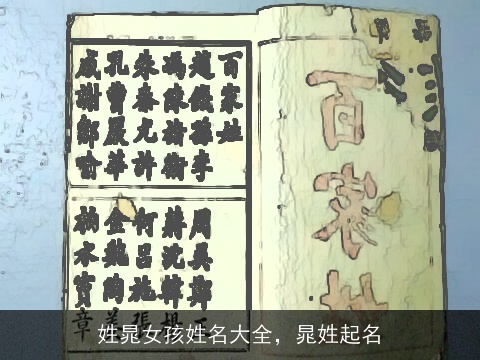 百家姓
百家姓
趙錢孫李
馮陳褚衛
朱秦尤許
孔曹嚴華
戚謝鄒喻
周吳鄭王
蔣沈韓楊
何呂施張
金魏陶姜
柏水竇章
姓晁女孩姓名大全，晁姓起名